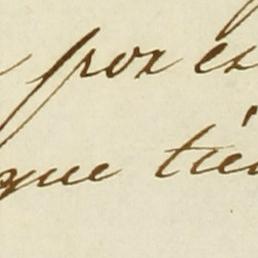 por es
que tie